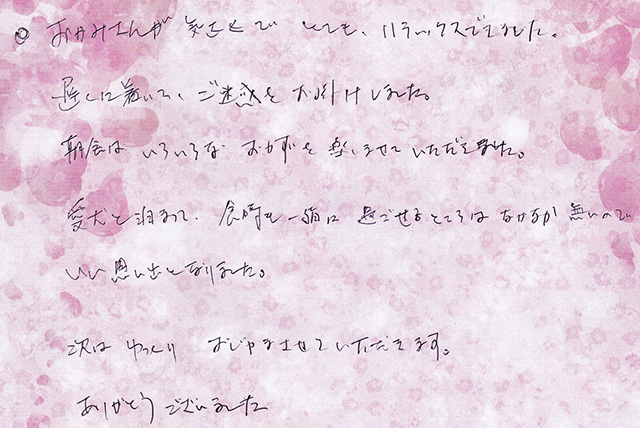 ◎ おかみさんが 気さくで とても、リラックスできました。
遅くに着いて、ご迷惑をお掛けしました。
朝食は いろいろな おかずを 楽しませて いただきました。
愛犬と泊まって、食事も一緒に 過ごせるところは なかなか 無いので
いい思い出となりました。
次は ゆっくり おじゃまさせていただきます。
ありがとう ございました